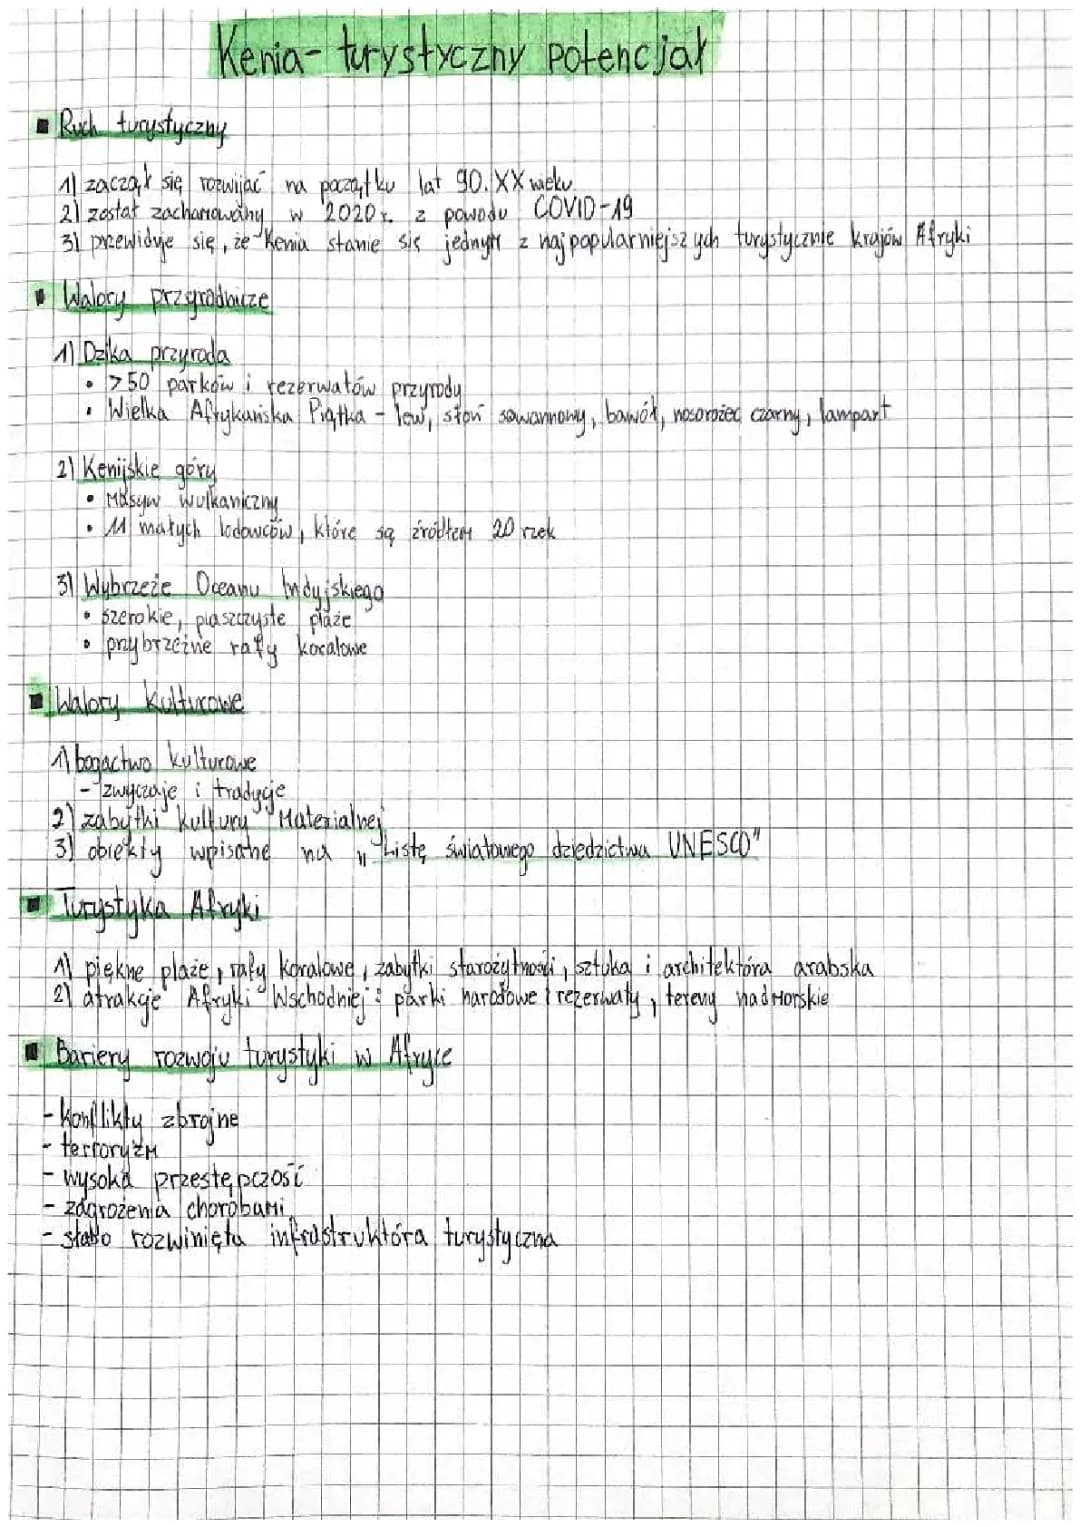 Kenia - turystyczny potencjał
▪ Ruch turystyczny
1) zaczął się rozwijać na początku lat 90. XX wieku
2) został zachamowany w 2020r. z powodu COVID-19
3) przewiduje się, że Kenia stanie się jednym z najpopularniejszych turystycznie krajów Afryki
▪ Walory przyrodnicze
1) Dzika przyroda
• >50 parków i rezerwatów przyrody
• Wielka Afrykańska Piątka - lew, słoń sawannowy, bawół, nosorożec czarny, lampart
2) Kenijskie góry
• Masyw wulkaniczny
• 11 małych lodowców, które są źródłem 20 rzek
3) Wybrzeże Oceanu Indyjskiego
• szerokie, piaszczyste plaże
• przybrzeżne rafy koralowe
▪ Walory kulturowe
1) bogactwo kulturowe
- zwyczaje i tradycje
2) zabytki kultury Materialnej
3) obiekty wpisane na „Listę światowego dziedzictwa UNESCO"
▪ Turystyka Afryki
1) piękne plaże, rafy koralowe, zabytki starożytności, sztuka i architektóra arabska
2) atrakcje Afryki Wschodniej: parki narodowe i rezerwaty, tereny nadmorskie
▪ Bariery rozwoju turystyki w Afryce
- konflikty zbrojne
- terroryzm
- wysoka przestępczość
- zagrożenia chorobami
- słabo rozwinięta infrastruktóra turystyczna